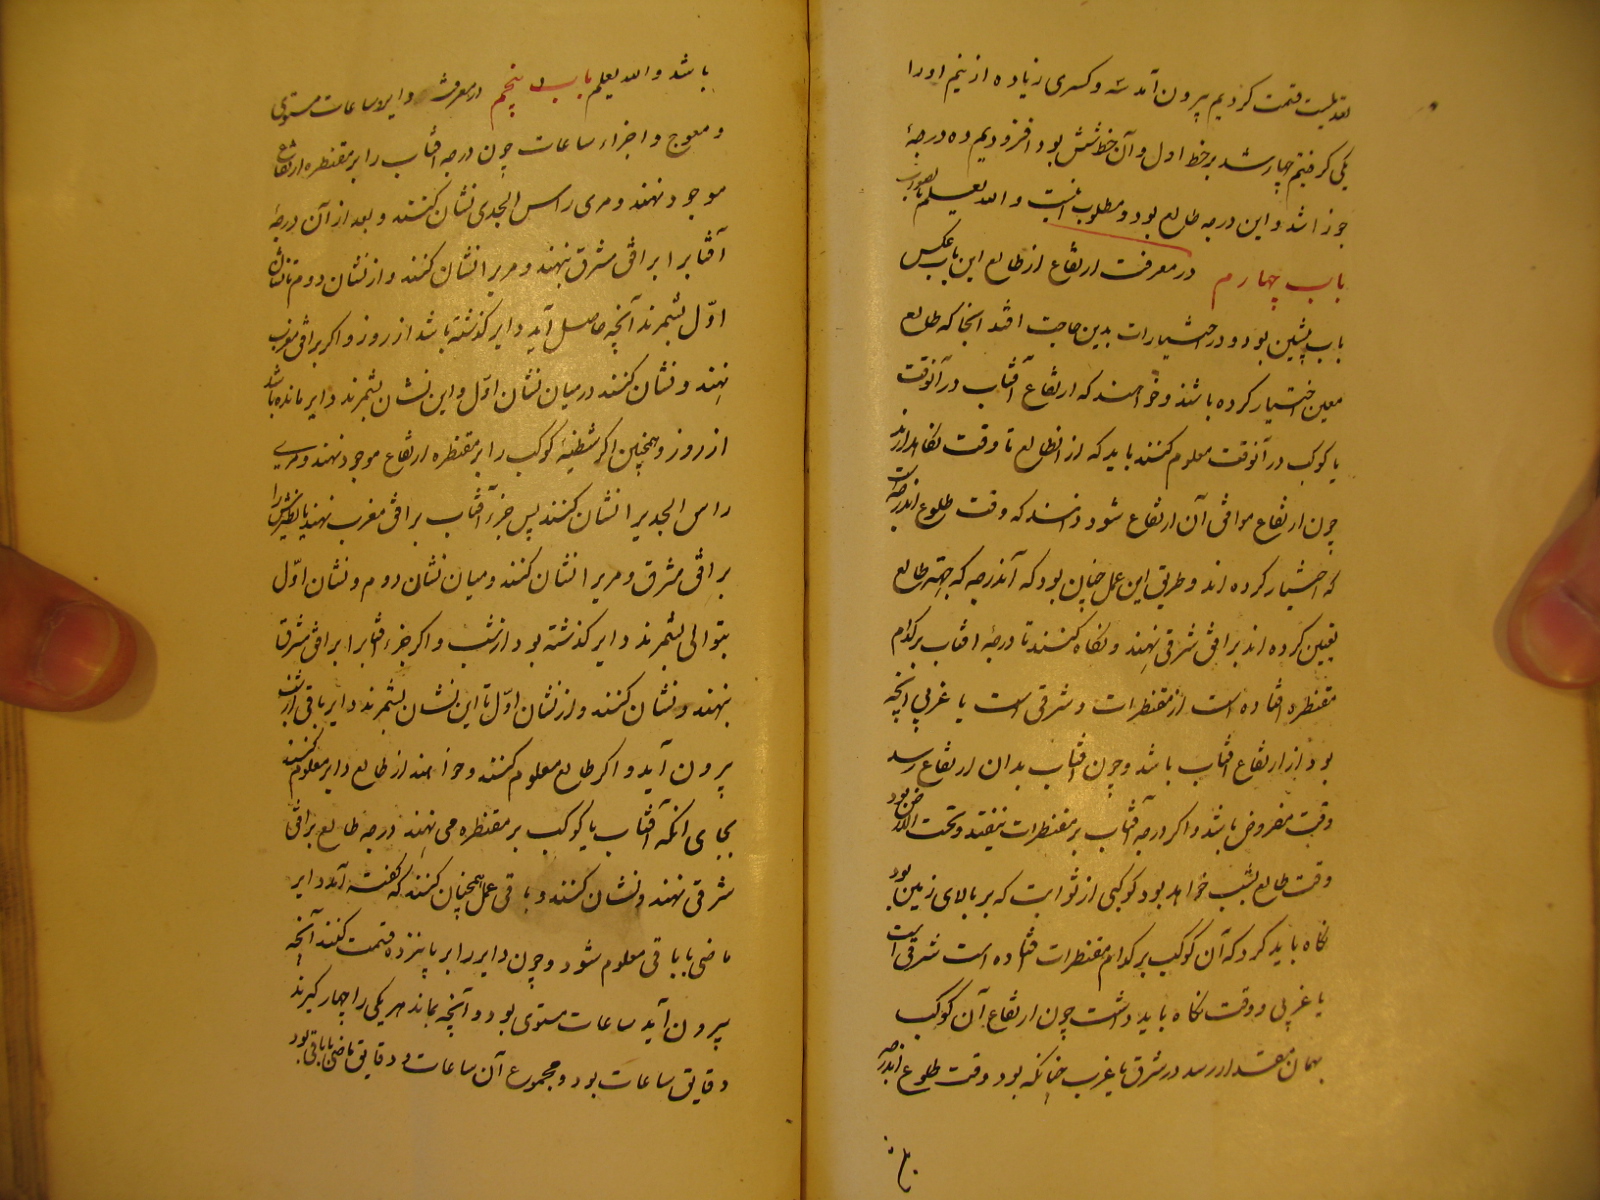 تعدیلست قسمت کردیم بیرون آمد سه و کسری زیاده از نیم او را
یکی گرفتیم چهار شد بر خط اول و آن خط شش بود افزودیم ده درجهٔ
جوزا شد و این درجه طالع بود و مطلوب اینست و الله یعلم بالصواب
باب چهارم در معرفت ارتفاع از طالع این باب عکس
باب پیشین بود و در اختیارات بدین حاجت افتد آنجا که طالع
معین اختیار کرده باشند و خواهند که ارتفاع آفتاب در آنوقت
یا کوکب در آنوقت معلوم کنند باید که از انطالع تا وقت نگاه دارند
چون ارتفاع موافق آن ارتفاع شود دانند که وقت طلوع اندرجه است
که اختیار کرده اند و طریق این عمل چنان بود که آندرجه که جهة طالع
تعیین کرده اند بر افق شرقی نهند و نگاه کنند تا درجهٔ افتاب بر کدام
مقنطره افتاده است از مقنطرات و شرقی است یا غربی آنچه
بود از ارتفاع افتاب باشد و چون افتاب بدان ارتفاع رسد
وقت مفروض باشد و اگر درجه آفتاب بر مقنطرات نیفتد و تحت الارض بود
وقت طالع بشب خواهد بود کوکبی از ثوابت که بر بالای زمین بود
نگاه باید کرد که آن کوکب بر کدام مقنطرات افتاده است شرقی است
یا غربی و وقت نگاه باید داشت چون ارتفاع آن کوکب
بهمان مقدار رسد در شرق یا غرب چنانکه بود وقت طلوع اندرجه
باشد و الله یعلم باب پنجم در معرفت دایر و ساعات مستوی
و معوج و اجزاء ساعات چون درجه آفتاب را بر مقنطره ارتفاع
موجود نهند و مری راس الجدی نشان کنند و بعد از آن درجهٔ
آفتاب را بر افق مشرق نهند و مریرا نشان کنند و از نشان دوم تا نشان
اوّل بشمرند آنچه حاصل آید دایر گذشته باشد از روز و اگر بر افق مغرب
نهند و نشان کنند در میان نشان اوّل و این نشان بشمرند دایر مانده باشد
از روز و همچنین اگر شظیهٔ کوکب را بر مقنطره ارتفاع موجود نهند و مری
راس الجدیرا نشان کنند پس جزء آفتاب بر افق مغرب نهند یا نظیرش را
بر افق مشرق و مریرا نشان کنند و میان نشان دوم و نشان اوّل
بتوالی بشمرند دایر گذشته بود از شب و اگر جزء آفتابرا بر افق مشرق
نهند و نشان کنند و از نشان اوّل تا این نشان بشمرند دایر باقی از شب
بیرون آید و اگر طالع معلوم کنند و خواهند از طالع دایر معلوم کنند
بجای آنکه آفتاب یا کوکب بر مقنطره می نهند درجه طالع بر افق
شرقی نهند و نشان کنند و باقی عمل همچنان کنند که گفته آمد دایر
ماضی یا باقی معلوم شود و چون دایر را بر پانزده قسمت کنند آنچه
بیرون آید ساعات مستوی بود و آنچه بماند هر یکی را چهار گیرند
دقایق ساعات بود و مجموع آن ساعات و دقایق ماضی یا باقی بود